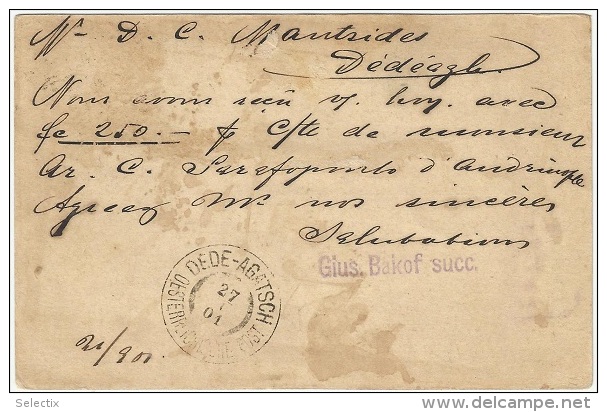 Mr D. C. Mantzides
Dédéagh.
Nous avons reçu v/ avec
fc 250.- p c/te de monsieur
Ar. C. Sarafopoulo d'Andrinople
Agréez Mr nos sincères
Salutations
Gius. Bakof succ.
DEDE-AGATSCH
27
01
OESTERREICHISCHE POST
Selectix
www.delcampe.net